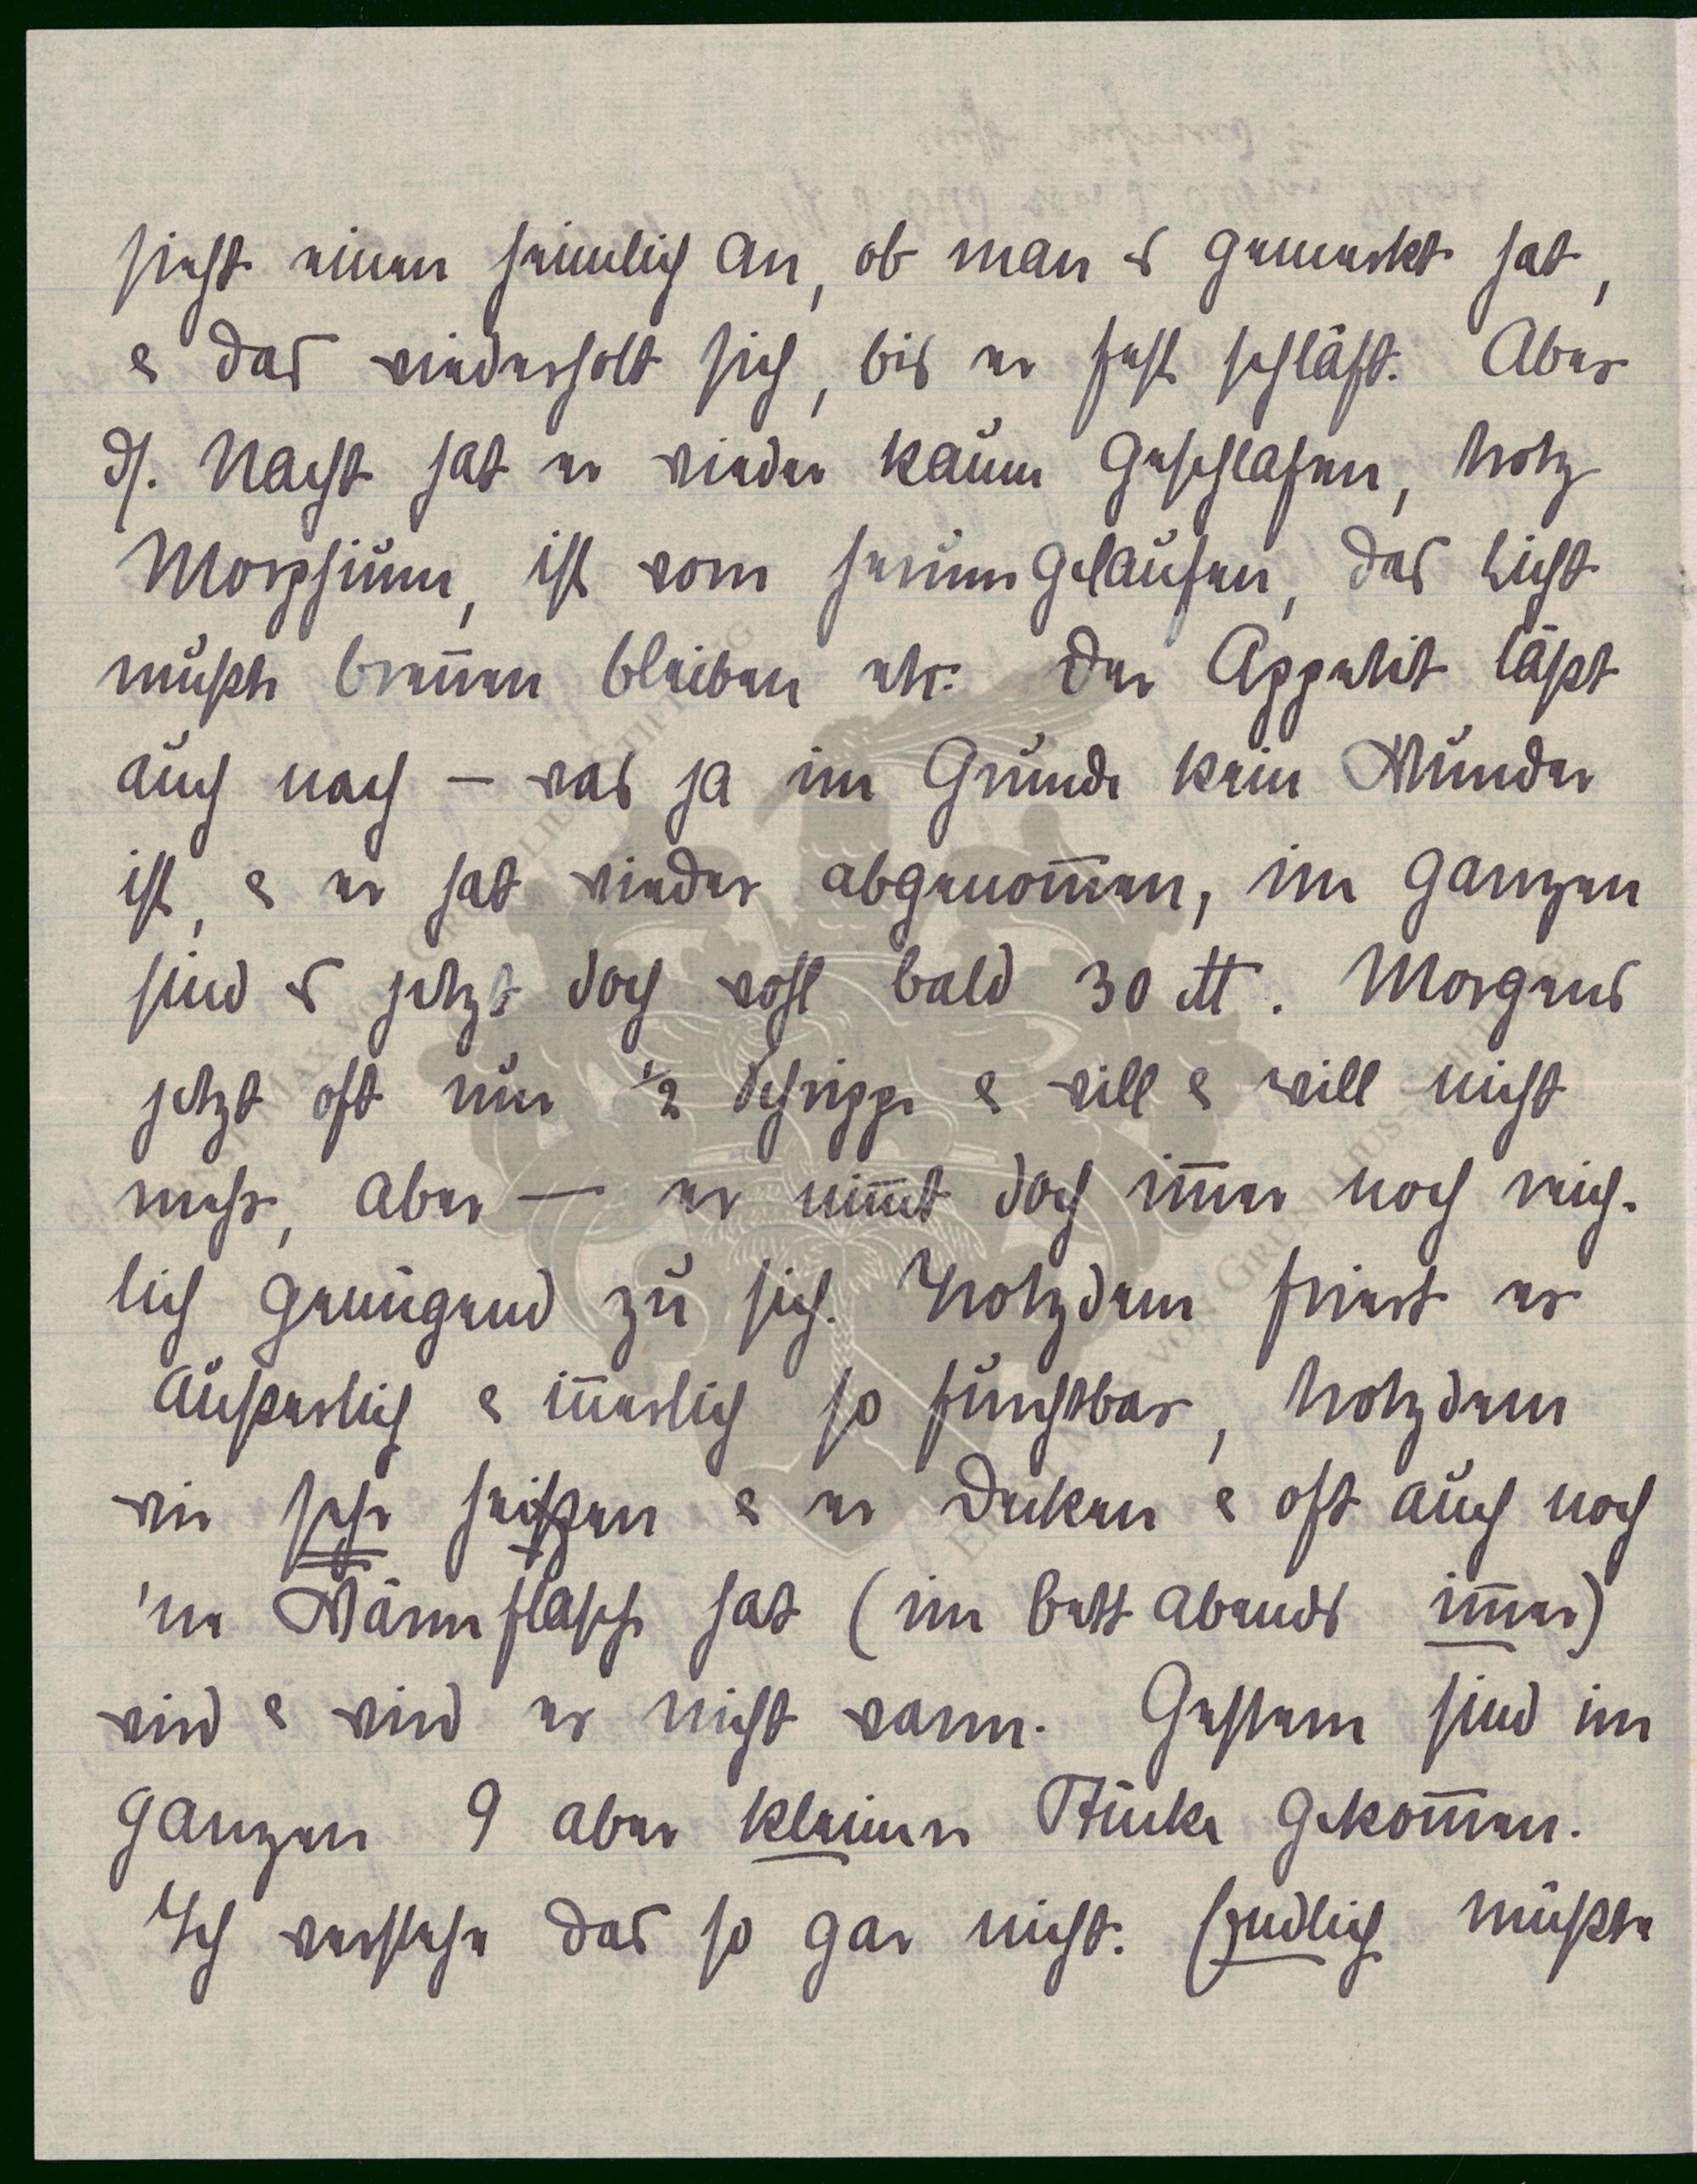 sieht einen heimlich an, ob man es gemerkt hat,
& das wiederholt sich, bis er fest schläft. Aber
ds. Nacht hat er wieder kaum geschlafen, trotz
Morphium, ist vorn herumgelaufen, das Licht
mußte breñen bleiben etc. Der Appetit läßt
auch nach – was ja im Grunde kein Wunder
ist, & er hat wieder abgenom̄en, im ganzen
sind es jetzt doch wohl bald 30 ℔. Morgens
jetzt oft nur ½ Schrippe & will & will nicht
mehr, aber — er nim̄t doch im̄er noch reich-
lich genügend zu sich. Trotzdem friert er
äußerlich & iñerlich so furchtbar, trotzdem
wir sehr heizen & er Decken & oft auch noch
'ne Wärmflasche hat (im Bett abends im̄er)
wird & wird er nicht warm. Gestern sind im
ganzen 9 aber kleinere Stücke gekom̄en.
Ich verstehe das so gar nicht. Endlich müßte